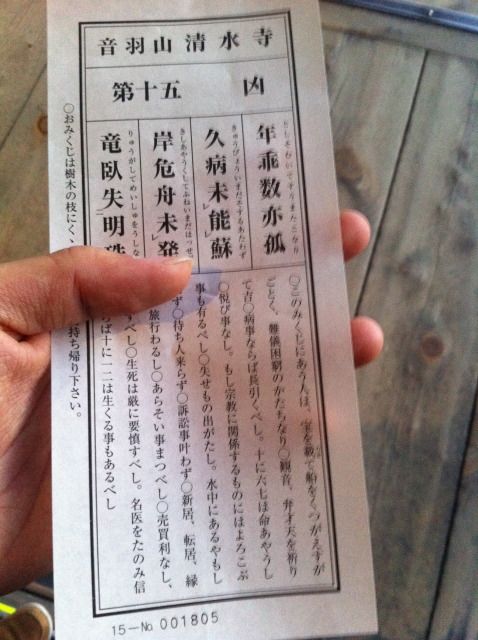 音羽山清水寺
第十五 凶
年乖数亦孤
きゅうびょういまだそするあたわず
久病未能蘇
きしあやうくしてふねいまだはっせ
岸危舟未発
りゅうがしてめいしゅをうしな
竜臥失明珠
○このみくじにあう人は、宝を載て船をくつがえすが
ごとく、難儀困窮のかたちなり○観音、弁才天を祈り
て吉○病事ならば長引くべし。十に六七は命あやうし
○悦び事なし。もし宗教に関係するものにはよろこぶ
事も有るべし○失せもの出がたし。水中にあるやもし
ず○待ち人来らず○訴訟事叶わず○新居、転居、縁
旅行わるし○あらそい事まつべし○売買利なし、
すべし○生死は厳に要慎すべし。名医をたのみ信
らば十に一二は生くる事もあるべし
○おみくじは樹木の枝にく 持ち帰り下さい。
15-No 001805